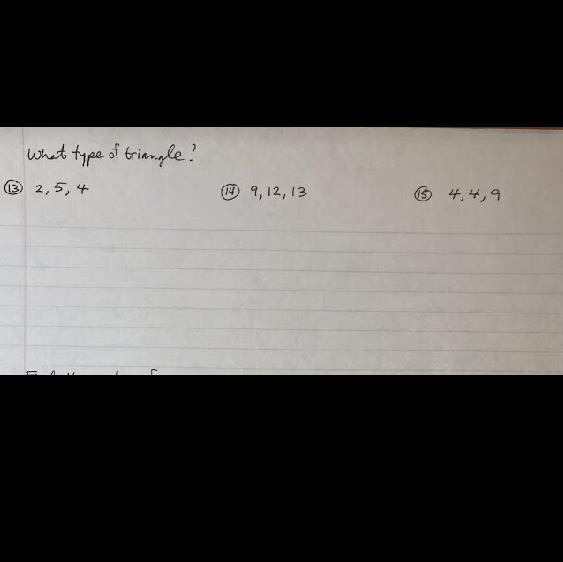 What type of triangle?
13 2, 5, 4 14 9, 12, 13 15 4, 4, 9